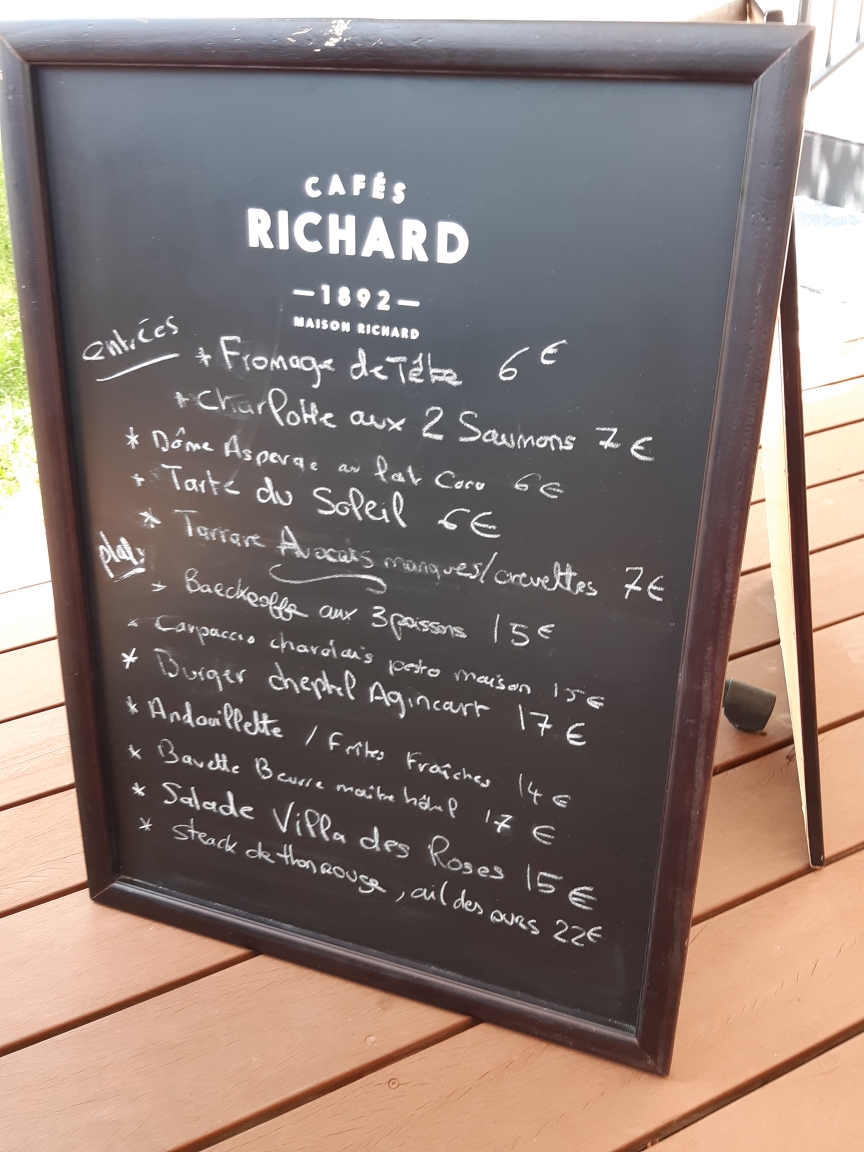 CAFÉS
RICHARD
—1892—
MAISON RICHARD
entrées
* Fromage de Tête 6€
* Charlotte aux 2 Saumons 7€
* Dôme Asperge au lait Coco 6€
* Tarte du Soleil 6€
* Tartare Avocats mangues/crevettes 7€
plats
* Baeckeoffe aux 3 poissons 15€
* Carpaccio charolais pesto maison 15€
* Burger cheptel Agincart 17€
* Andouillette / Frites Fraîches 14€
* Bavette Beurre maître hôtel 17€
* Salade Villa des Roses 15€
* Steack de thon rouge, ail des ours 22€